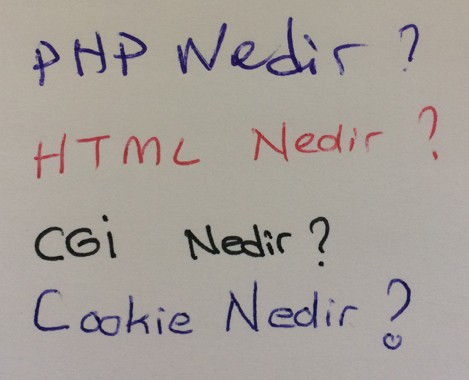 PHP Nedir ?
HTML Nedir ?
CGİ Nedir ?
Cookie Nedir ?